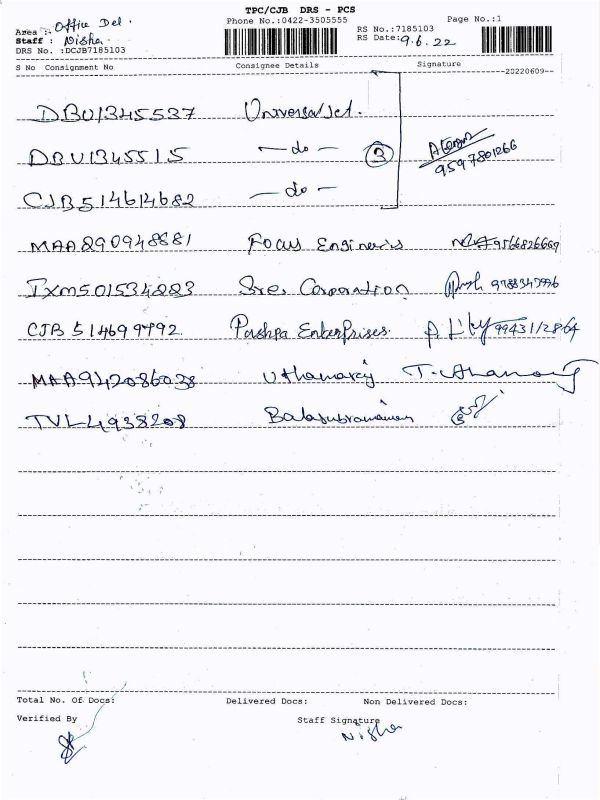 TPC/CJB DRS - PCS
Phone No.:0422-3505555
Page No.:1
Area : Office Del.
Staff : Nisha
DRS No. :DCJB7185103
RS No.:7185103
RS Date:9.6.22
S No Consignment No Consignee Details Signature
20220609
DBU1345537 Universal Jet.
DBU1345515 - do - 3 9597801266
CJB514614682 - do -
MAA290948681 Focus Engineers 9566826669
IXM501534223 Sree Corporation 9788347996
CJB514699792. Pushpa Enterprises. 99431/2864
MAA942086038 Uthamaraj
TVL4938208 Balasubramanian
Total No. Of Docs: Delivered Docs: Non Delivered Docs:
Verified By Staff Signature
Nisha